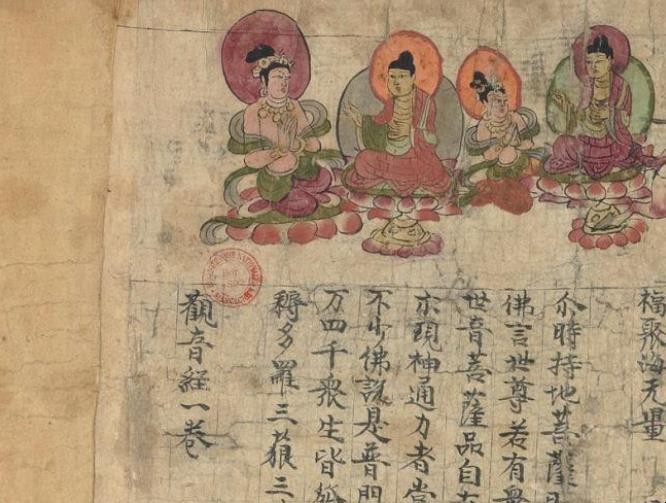 福聚海无量
尒時持地菩薩
佛言世尊若有
世音菩薩品自
示現神通力者當
不少佛說是普門
万四千衆生皆
耨多羅三藐三
觀音經一卷